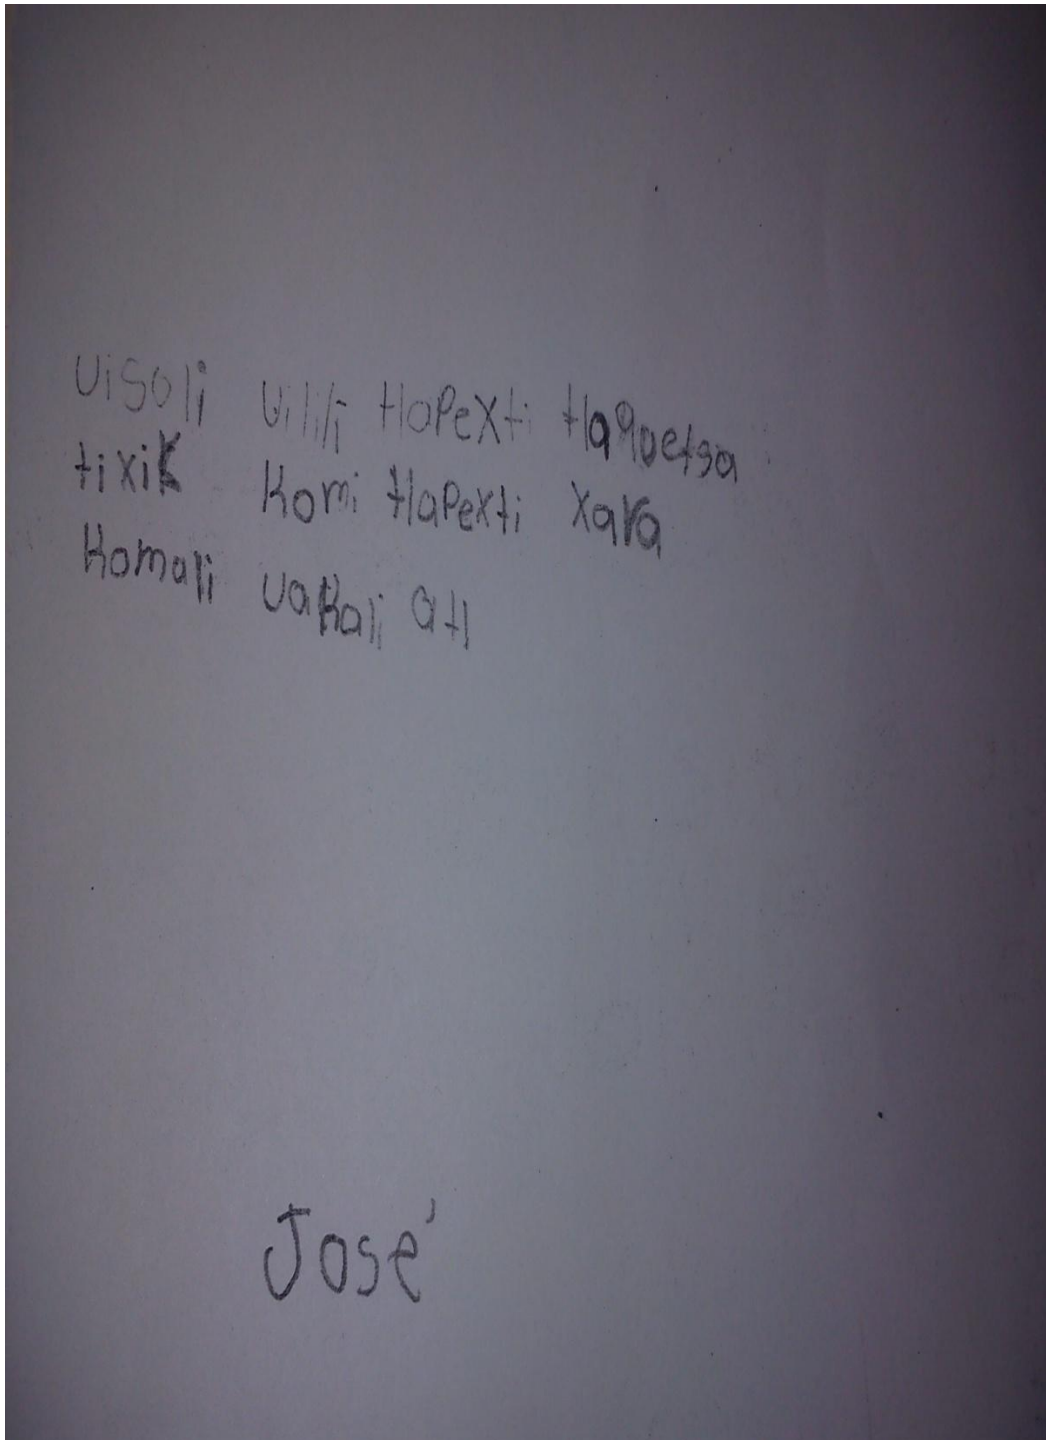 Uisoli Uilili tlapexti tlaquetsa
tixik Komi tlapexti xara
Komali Uakali atl
José